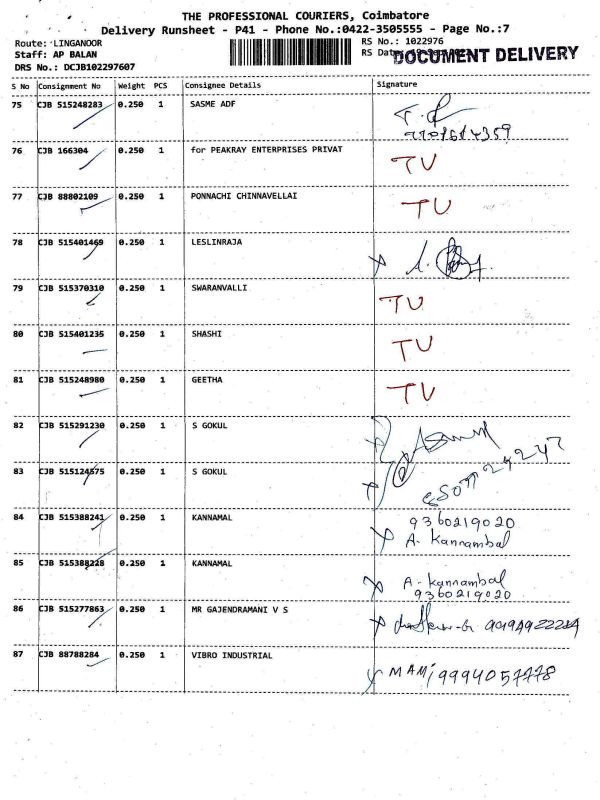 THE PROFESSIONAL COURIERS, Coimbatore
Delivery Runsheet - P41 - Phone No.:0422-3505555 - Page No.:7
Route: LINGANOOR RS No.: 1022976
Staff: AP BALAN RS Date: DOCUMENT DELIVERY
DRS No.: DCJB102297607
S No Consignment No Weight PCS Consignee Details Signature
75 CJB 515248283 0.250 1 SASME ADF
76 CJB 166304 0.250 1 for PEAKRAY ENTERPRISES PRIVAT TU
77 CJB 88802109 0.250 1 PONNACHI CHINNAVELLAI TU
78 CJB 515401469 0.250 1 LESLINRAJA
79 CJB 515370310 0.250 1 SWARANVALLI TU
80 CJB 515401235 0.250 1 SHASHI TU
81 CJB 515248980 0.250 1 GEETHA TU
82 CJB 515291230 0.250 1 S GOKUL
83 CJB 515124575 0.250 1 S GOKUL
84 CJB 515388241 0.250 1 KANNAMAL 9360219020
A. Kannambal
85 CJB 515388228 0.250 1 KANNAMAL A. Kannambal
9360219020
86 CJB 515277863 0.250 1 MR GAJENDRAMANI V S
87 CJB 88788284 0.250 1 VIBRO INDUSTRIAL MAMI 9994057778